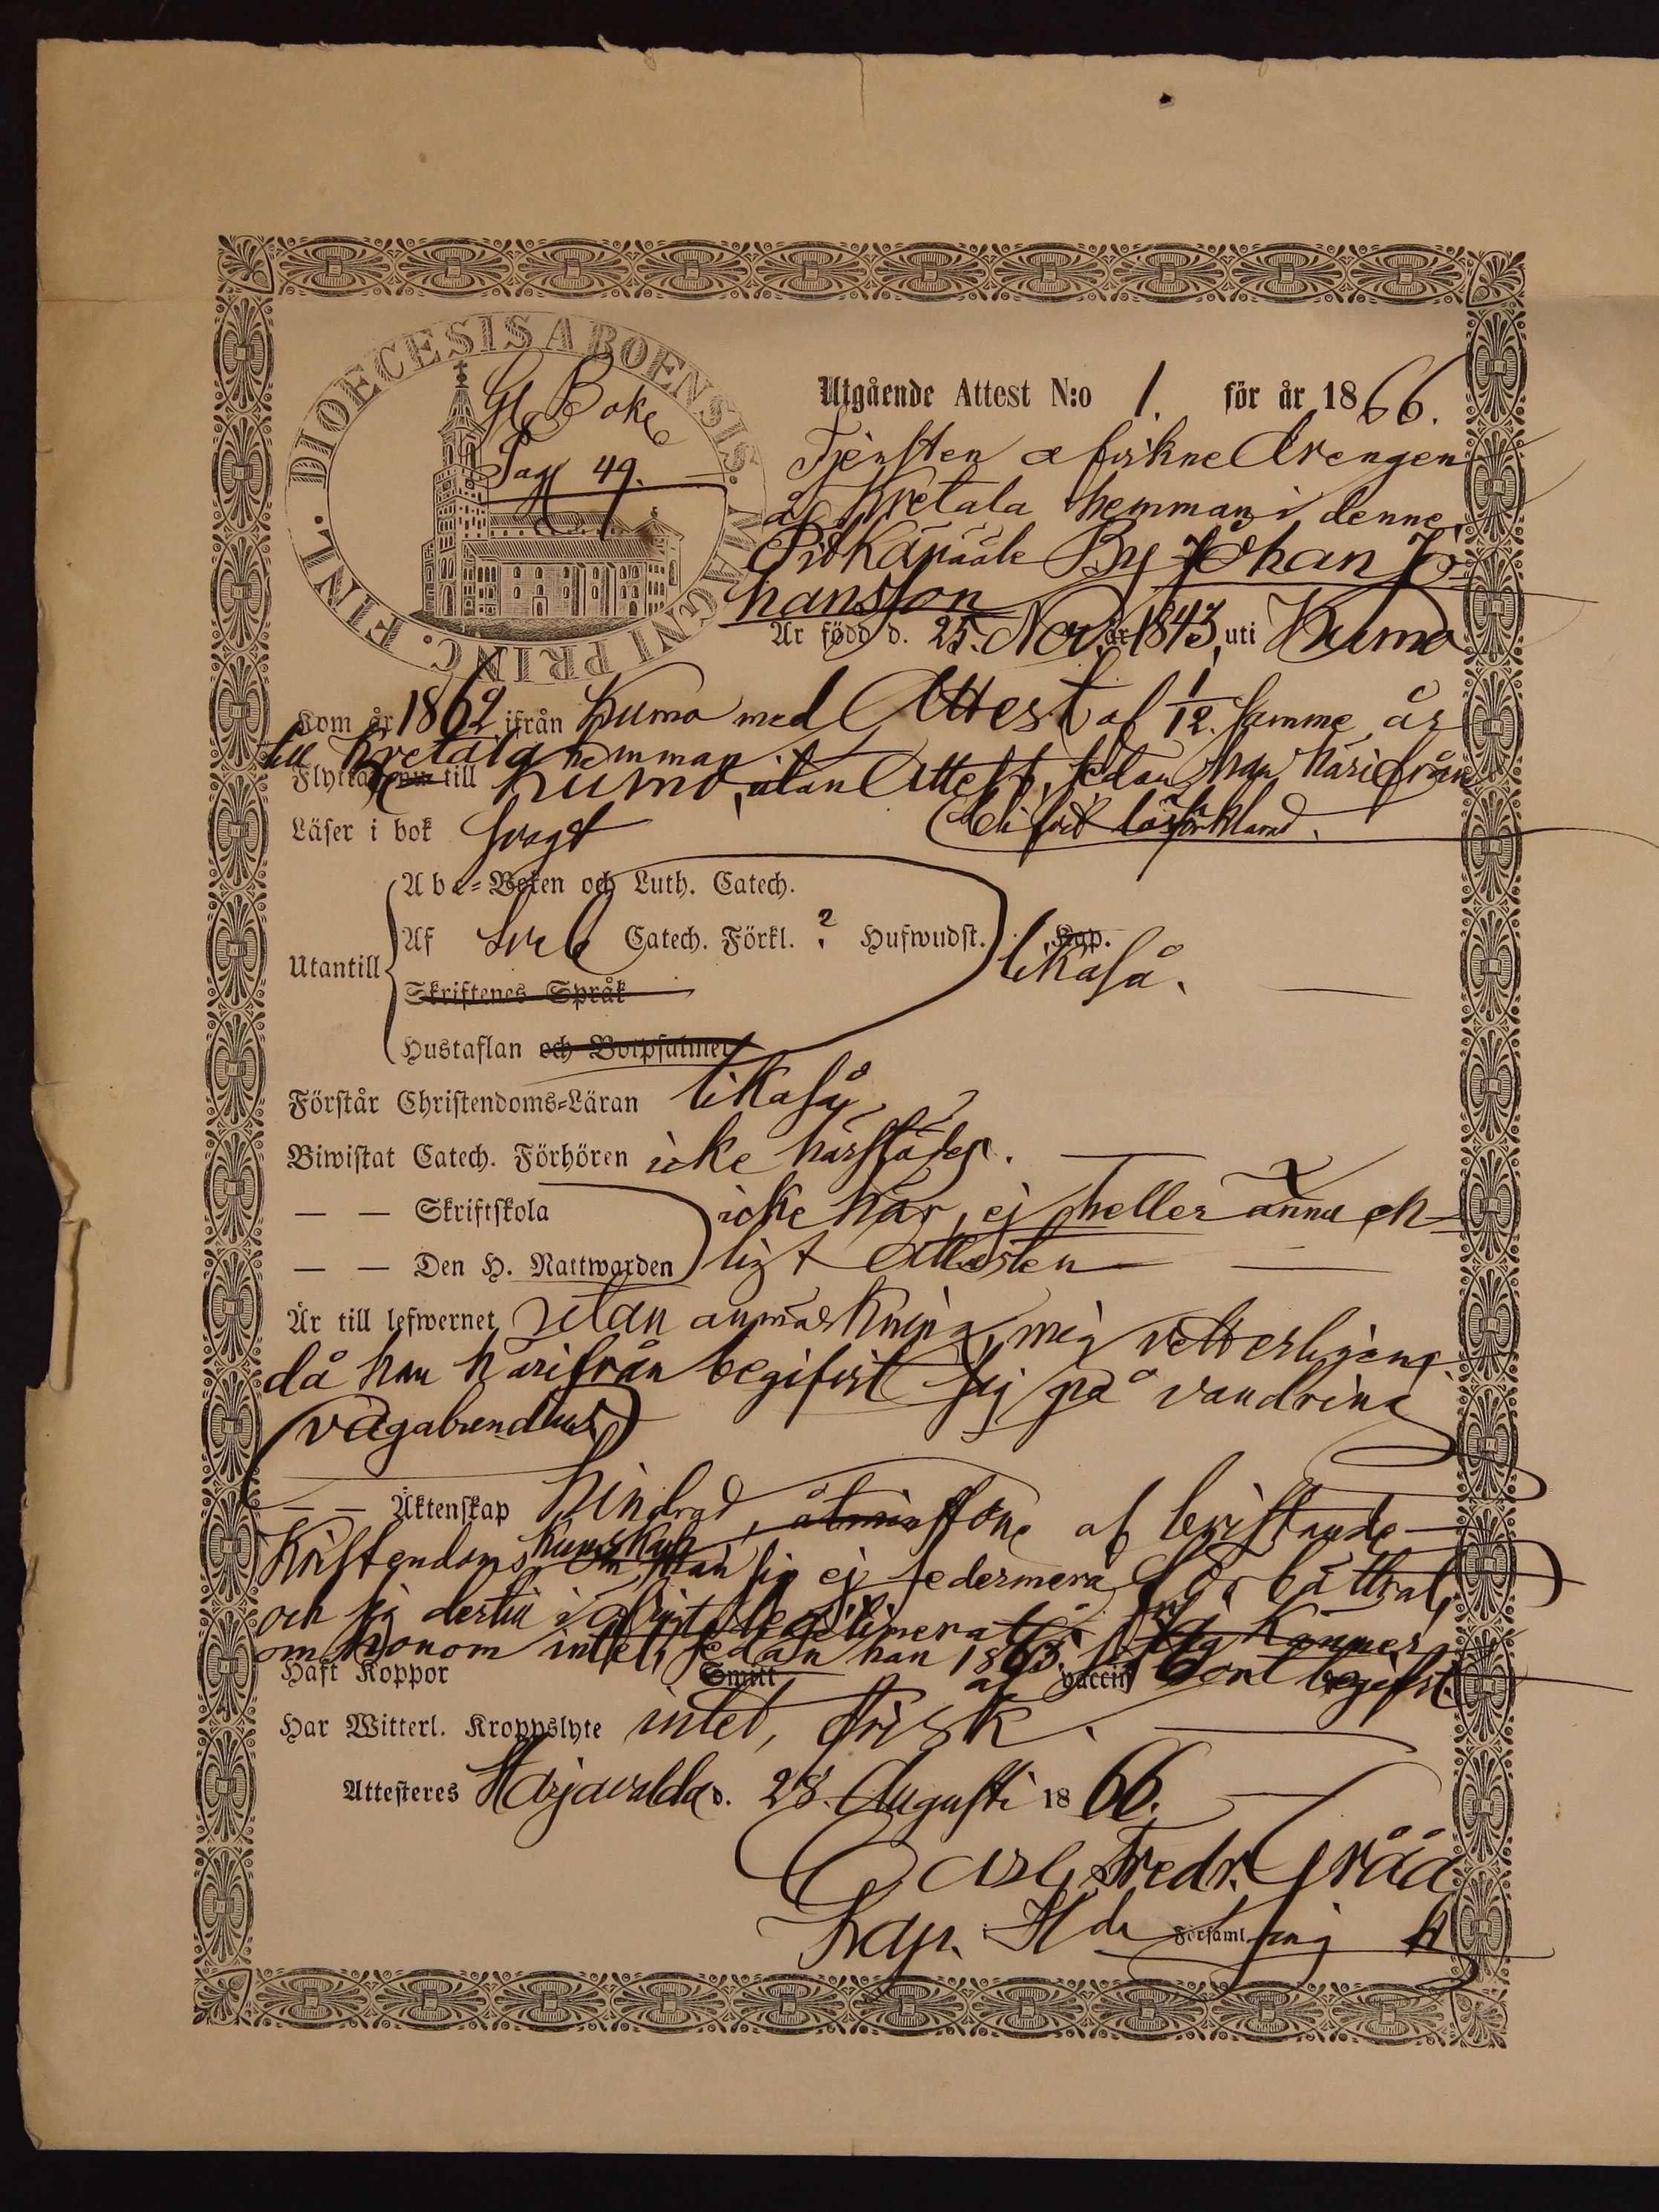 DIOECESIS ABOENSIS. MAGNI PRINC. FINL.
Gl. Boke
Pag 49.
Utgående Attest N:o 1. för år 1866.
Tjensten afvikne Drengen
å Kretala hemman i denne
By Johan Jo-
hansson
Är född d. 25. Nov. år 1843, uti Kumo
Kom år 1862 ifrån Kumo med Attest af 1/12. samme år
till Kretala hemman
Flyttade nu till Kumo, utan Attest, sedan han härifrån
blifvit
Läser i bok svagt
Abc-Boken och Luth. Catech.
Utantill
Af Catech. Förkl. ? Hufwudst. Kap.
likaså.
Skriftenes Språk
Hustaflan och Botpsalmer
Förstår Christendoms-Läran likaså
Biwistat Catech. Förhören icke härstädes.
— — Skriftskola icke här, ej heller
— — Den H. Nattwarden ligt Attesten
Är till lefwernet utan anmärkning, mig vetterligen,
då han härifrån begifvit sig på vandring
(vagabundus)
— — Äktenskap hindrad, åtminstone af bristande
Kristendoms kunskap, om han sig ej sedermera förbättrat,
och sig dertill
om honom intet, sedan han 1863 bort begifvit.
Haft Koppor Smitt af vaccin
Har Witterl. Kroppslyte intet, frisk.
Attesteres Harjavalda d. 28. Augusti 1866.
Carl Fredr. Gråå
Kap. Hda Församling